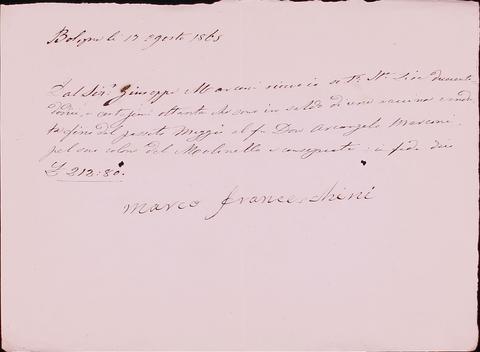 Bologna li 17 Agosto 1865
Dal Sig.r Giuseppe Marconi ricevo io S. Lire Duecento
dodici e centesimi ottanta che sono in saldo di una vaccina vendu
ta fino dal passato Maggio al fu Don Arcangelo Marconi
pel suo colono del Molinella e consegnata: in fede dico
£ 212:80.
Marco Franceschini